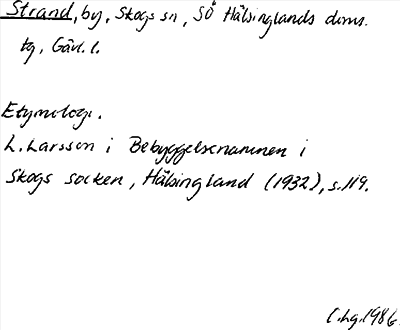 Strand, by, Skogs sn, SÖ Hälsinglands doms.
tg, Gävl. l.
Etymologi.
L. Larsson i Bebyggelsenamnen i
Skogs socken, Hälsingland (1932), s. 119.
L.hg. 1986